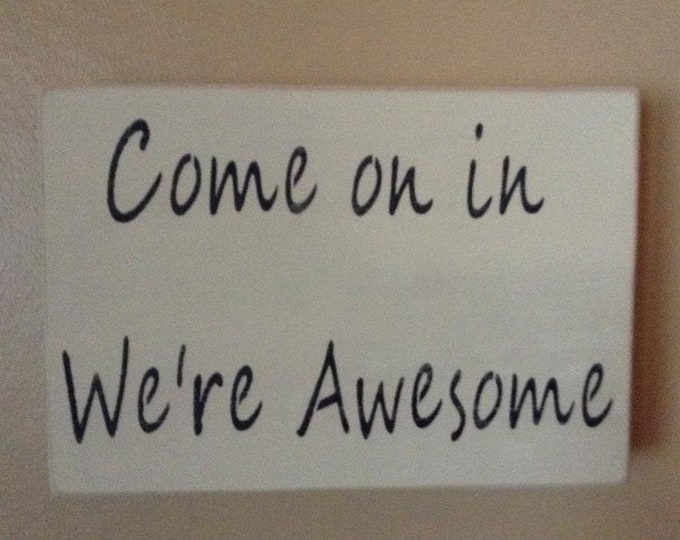 Come on in
We're Awesome